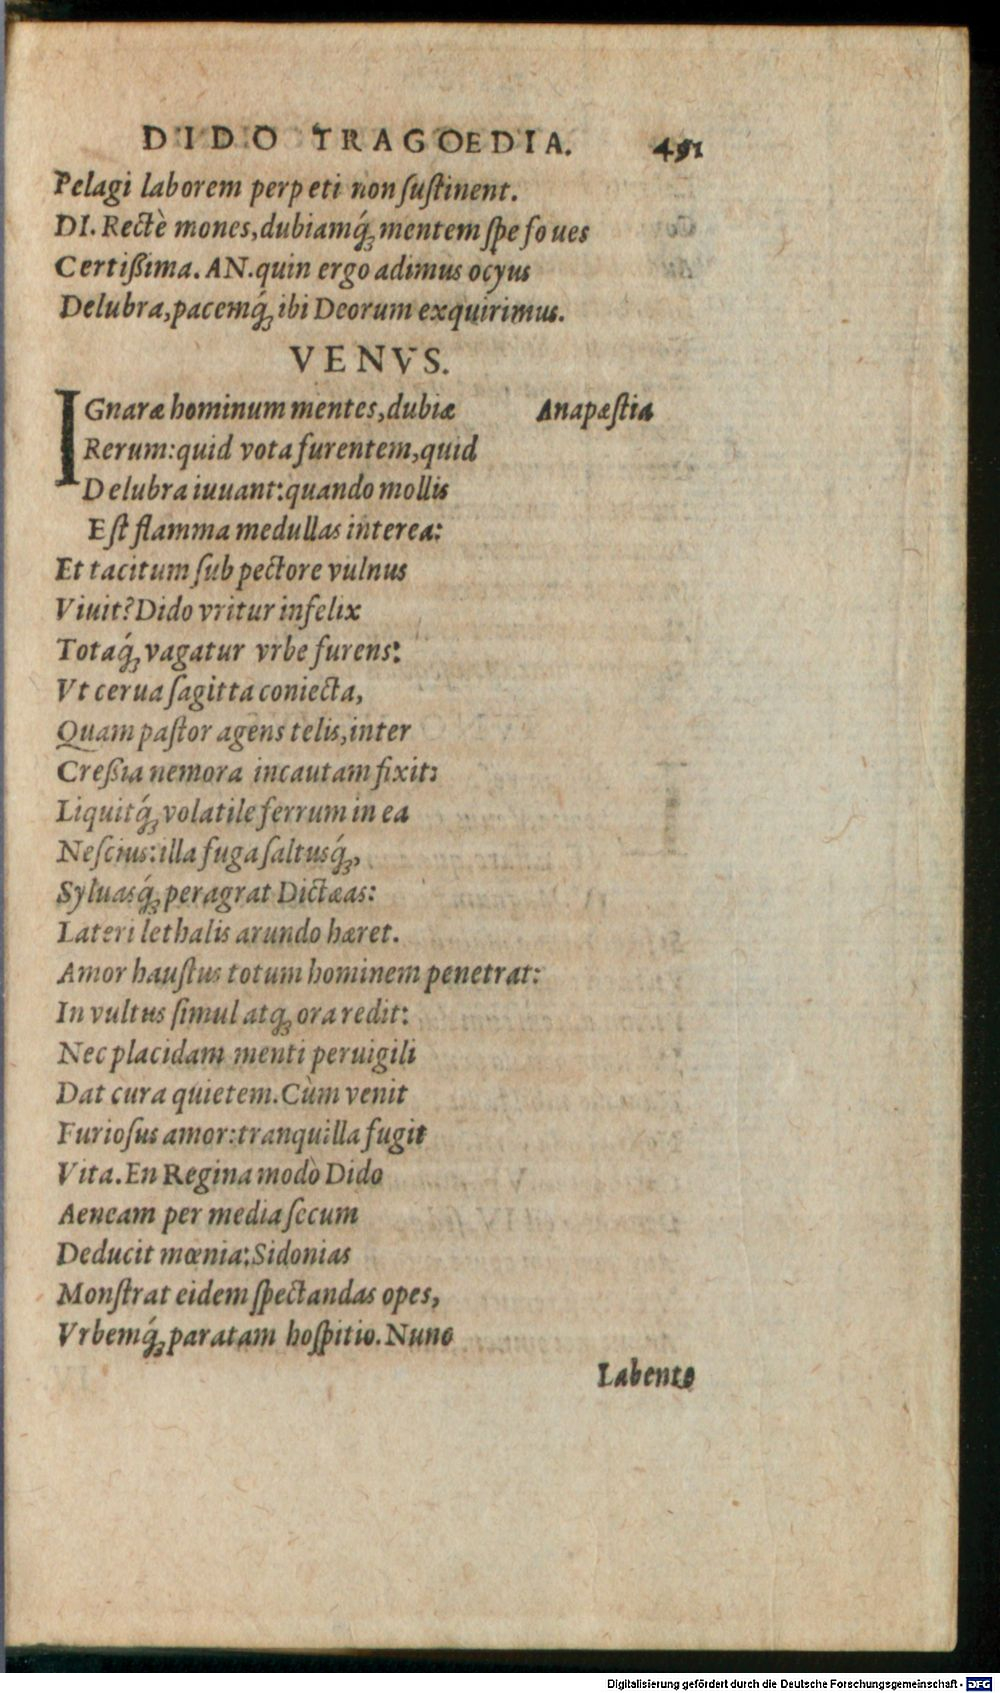 DIDO TRAGOEDIA. 491
Pelagi laborem perpeti non ſuſtinent.
DI. Rectè mones, dubiamq́ꝫ mentem ſpe foues
Certißima. AN. quin ergo adimus ocyus
Delubra, pacemq́ꝫ ibi Deorum exquirimus.
VENVS.
IGnaræ hominum mentes, dubiæ Anapæſtia
Rerum: quid vota furentem, quid
Delubra iuuant: quando mollis
Eſt flamma medullas interea:
Et tacitum ſub pectore vulnus
Viuit? Dido vritur infelix
Totaq́ꝫ vagatur vrbe furens:
Vt cerua ſagitta coniecta,
Quam paſtor agens telis, inter
Creßia nemora incautam fixit:
Liquitq́ꝫ volatile ferrum in ea
Neſcius: illa fuga ſaltusq́ꝫ,
Syluasq́ꝫ peragrat Dictæas:
Lateri lethalis arundo hæret.
Amor hauſtus totum hominem penetrat:
In vultus ſimul atqꝫ ora redit:
Nec placidam menti peruigili
Dat cura quietem. Cùm venit
Furioſus amor: tranquilla fugit
Vita. En Regina modò Dido
Aeneam per media ſecum
Deducit mœnia: Sidonias
Monſtrat eidem ſpectandas opes,
Vrbemq́ꝫ paratam hoſpitio. Nunc
Labente
Digitalisierung gefördert durch die Deutsche Forschungsgemeinschaft - DFG